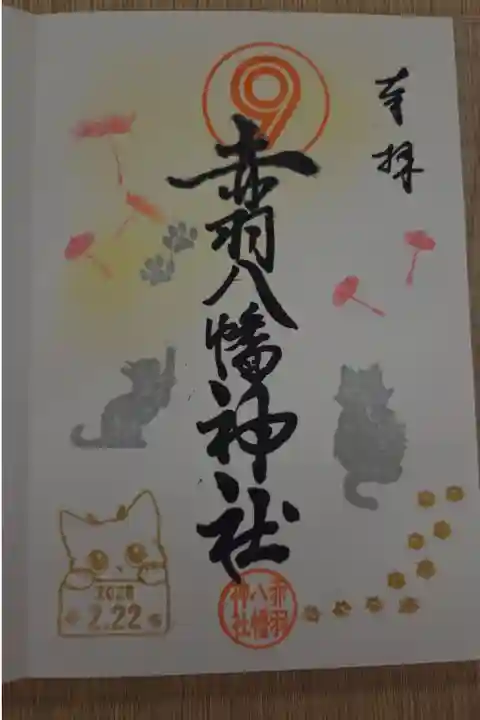 奉拝
赤羽八幡神社
赤羽
八幡
神社
2.22